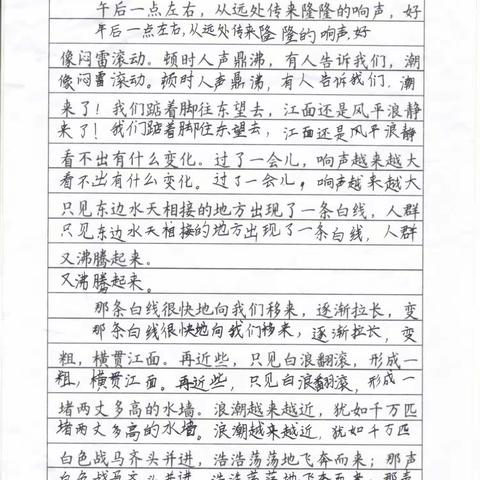 午后一点左右，从远处传来隆隆的响声，好
午后一点左右，从远处传来隆隆的响声，好
像闷雷滚动。顿时人声鼎沸，有人告诉我们，潮
像闷雷滚动。顿时人声鼎沸，有人告诉我们，潮
来了！我们踮着脚往东望去，江面还是风平浪静
来了！我们踮着脚往东望去，江面还是风平浪静
看不出有什么变化。过了一会儿，响声越来越大
看不出有什么变化。过了一会儿，响声越来越大
只见东边水天相接的地方出现了一条白线，人群
只见东边水天相接的地方出现了一条白线，人群
又沸腾起来。
又沸腾起来。
那条白线很快地向我们移来，逐渐拉长，变
那条白线很快地向我们移来，逐渐拉长，变
粗，横贯江面。再近些，只见白浪翻滚，形成一
粗，横贯江面。再近些，只见白浪翻滚，形成一
堵两丈多高的水墙。浪潮越来越近，犹如千万匹
堵两丈多高的水墙。浪潮越来越近，犹如千万匹
白色战马齐头并进，浩浩荡荡地飞奔而来；那声
白色战马齐头并进，浩浩荡荡地飞奔而来；那声